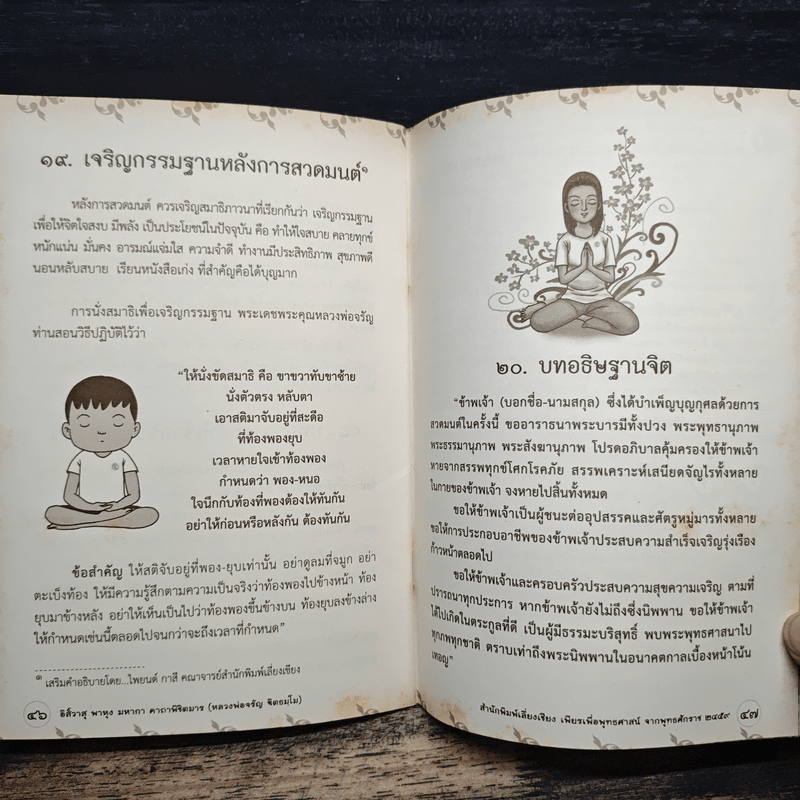 ๑๙. เจริญกรรมฐานหลังการสวดมนต์๑
หลังการสวดมนต์ ควรเจริญสมาธิภาวนาที่เรียกกันว่า เจริญกรรมฐาน
เพื่อให้จิตใจสงบ มีพลัง เป็นประโยชน์ในปัจจุบัน คือ ทำให้ใจสบาย คลายทุกข์
หนักแน่น มั่นคง อารมณ์แจ่มใส ความจำดี ทำงานมีประสิทธิภาพ สุขภาพดี
นอนหลับสบาย เรียนหนังสือเก่ง ที่สำคัญคือได้บุญมาก
การนั่งสมาธิเพื่อเจริญกรรมฐาน พระเดชพระคุณหลวงพ่อจรัญ
ท่านสอนวิธีปฏิบัติไว้ว่า
“ให้นั่งขัดสมาธิ คือ ขาขวาทับขาซ้าย
นั่งตัวตรง หลับตา
เอาสติมาจับอยู่ที่สะดือ
ที่ท้องพองยุบ
เวลาหายใจเข้าท้องพอง
กำหนดว่า พอง-หนอ
ใจนึกกับท้องที่พองต้องให้ทันกัน
อย่าให้ก่อนหรือหลังกัน ต้องทันกัน
ข้อสำคัญ ให้สติจับอยู่ที่พอง-ยุบเท่านั้น อย่าดูลมที่จมูก อย่า
ตะเบ็งท้อง ให้มีความรู้สึกตามความเป็นจริงว่าท้องพองไปข้างหน้า ท้อง
ยุบมาข้างหลัง อย่าให้เห็นเป็นไปว่าท้องพองขึ้นข้างบน ท้องยุบลงข้างล่าง
ให้กำหนดเช่นนี้ตลอดไปจนกว่าจะถึงเวลาที่กำหนด”
๑ เสริมคำอธิบายโดย...ไพยนต์ กาสี คณาจารย์สำนักพิมพ์เลี่ยงเชียง
๔๖ อิสีวาสุ พาหุง มหากา คาถาพิชิตมาร (หลวงพ่อจรัญ ฐิตธมฺโม)
๒๐. บทอธิษฐานจิต
“ข้าพเจ้า (บอกชื่อ-นามสกุล) ซึ่งได้บำเพ็ญบุญกุศลด้วยการ
สวดมนต์ในครั้งนี้ ขออาราธนาพระบารมีทั้งปวง พระพุทธานุภาพ
พระธรรมานุภาพ พระสังฆานุภาพ โปรดอภิบาลคุ้มครองให้ข้าพเจ้า
หายจากสรรพทุกข์โศกโรคภัย สรรพเคราะห์เสนียดจัญไรทั้งหลาย
ในกายของข้าพเจ้า จงหายไปสิ้นทั้งหมด
ขอให้ข้าพเจ้าเป็นผู้ชนะต่ออุปสรรคและศัตรูหมู่มารทั้งหลาย
ขอให้การประกอบอาชีพของข้าพเจ้าประสบความสำเร็จเจริญรุ่งเรือง
ก้าวหน้าตลอดไป
ขอให้ข้าพเจ้าและครอบครัวประสบความสุขความเจริญ ตามที่
ปรารถนาทุกประการ หากข้าพเจ้ายังไม่ถึงซึ่งนิพพาน ขอให้ข้าพเจ้า
ได้ไปเกิดในตระกูลที่ดี เป็นผู้มีธรรมะบริสุทธิ์ พบพระพุทธศาสนาไป
ทุกภพทุกชาติ ตราบเท่าถึงพระนิพพานในอนาคตกาลเบื้องหน้าโน้น
เทอญ”
สำนักพิมพ์เลี่ยงเชียง เพียรเพื่อพุทธศาสน์ จากพุทธศักราช ๒๔๕๙ ๔๗